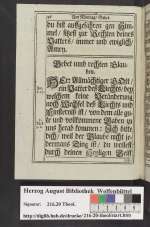 Am Montag/ Gebet
du bist auffgefahren gen Him-
mel / sitzest zur Rechten deines
Vatters / immer und ewiglich /
Amen.
Gebet umb rechten Glau-
ben.
HErr Allmächtiger GOtt /
ein Vatter des Liechts / bey
welchem keine Veränderung
noch Wechsel des Liechts und
Finsternüß ist / von dem alle gu-
te und vollkommene Gaben zu
uns herab kommen: Ich bitte
dich / weil der Glaube nicht je-
dermans Ding ist / du wollest
durch deinen Heyligen Geist
Herzog August Bibliothek Wolfenbüttel
Signatur: 216.20 Theol.
http://diglib.hab.de/drucke/216-20-theol/start.htm